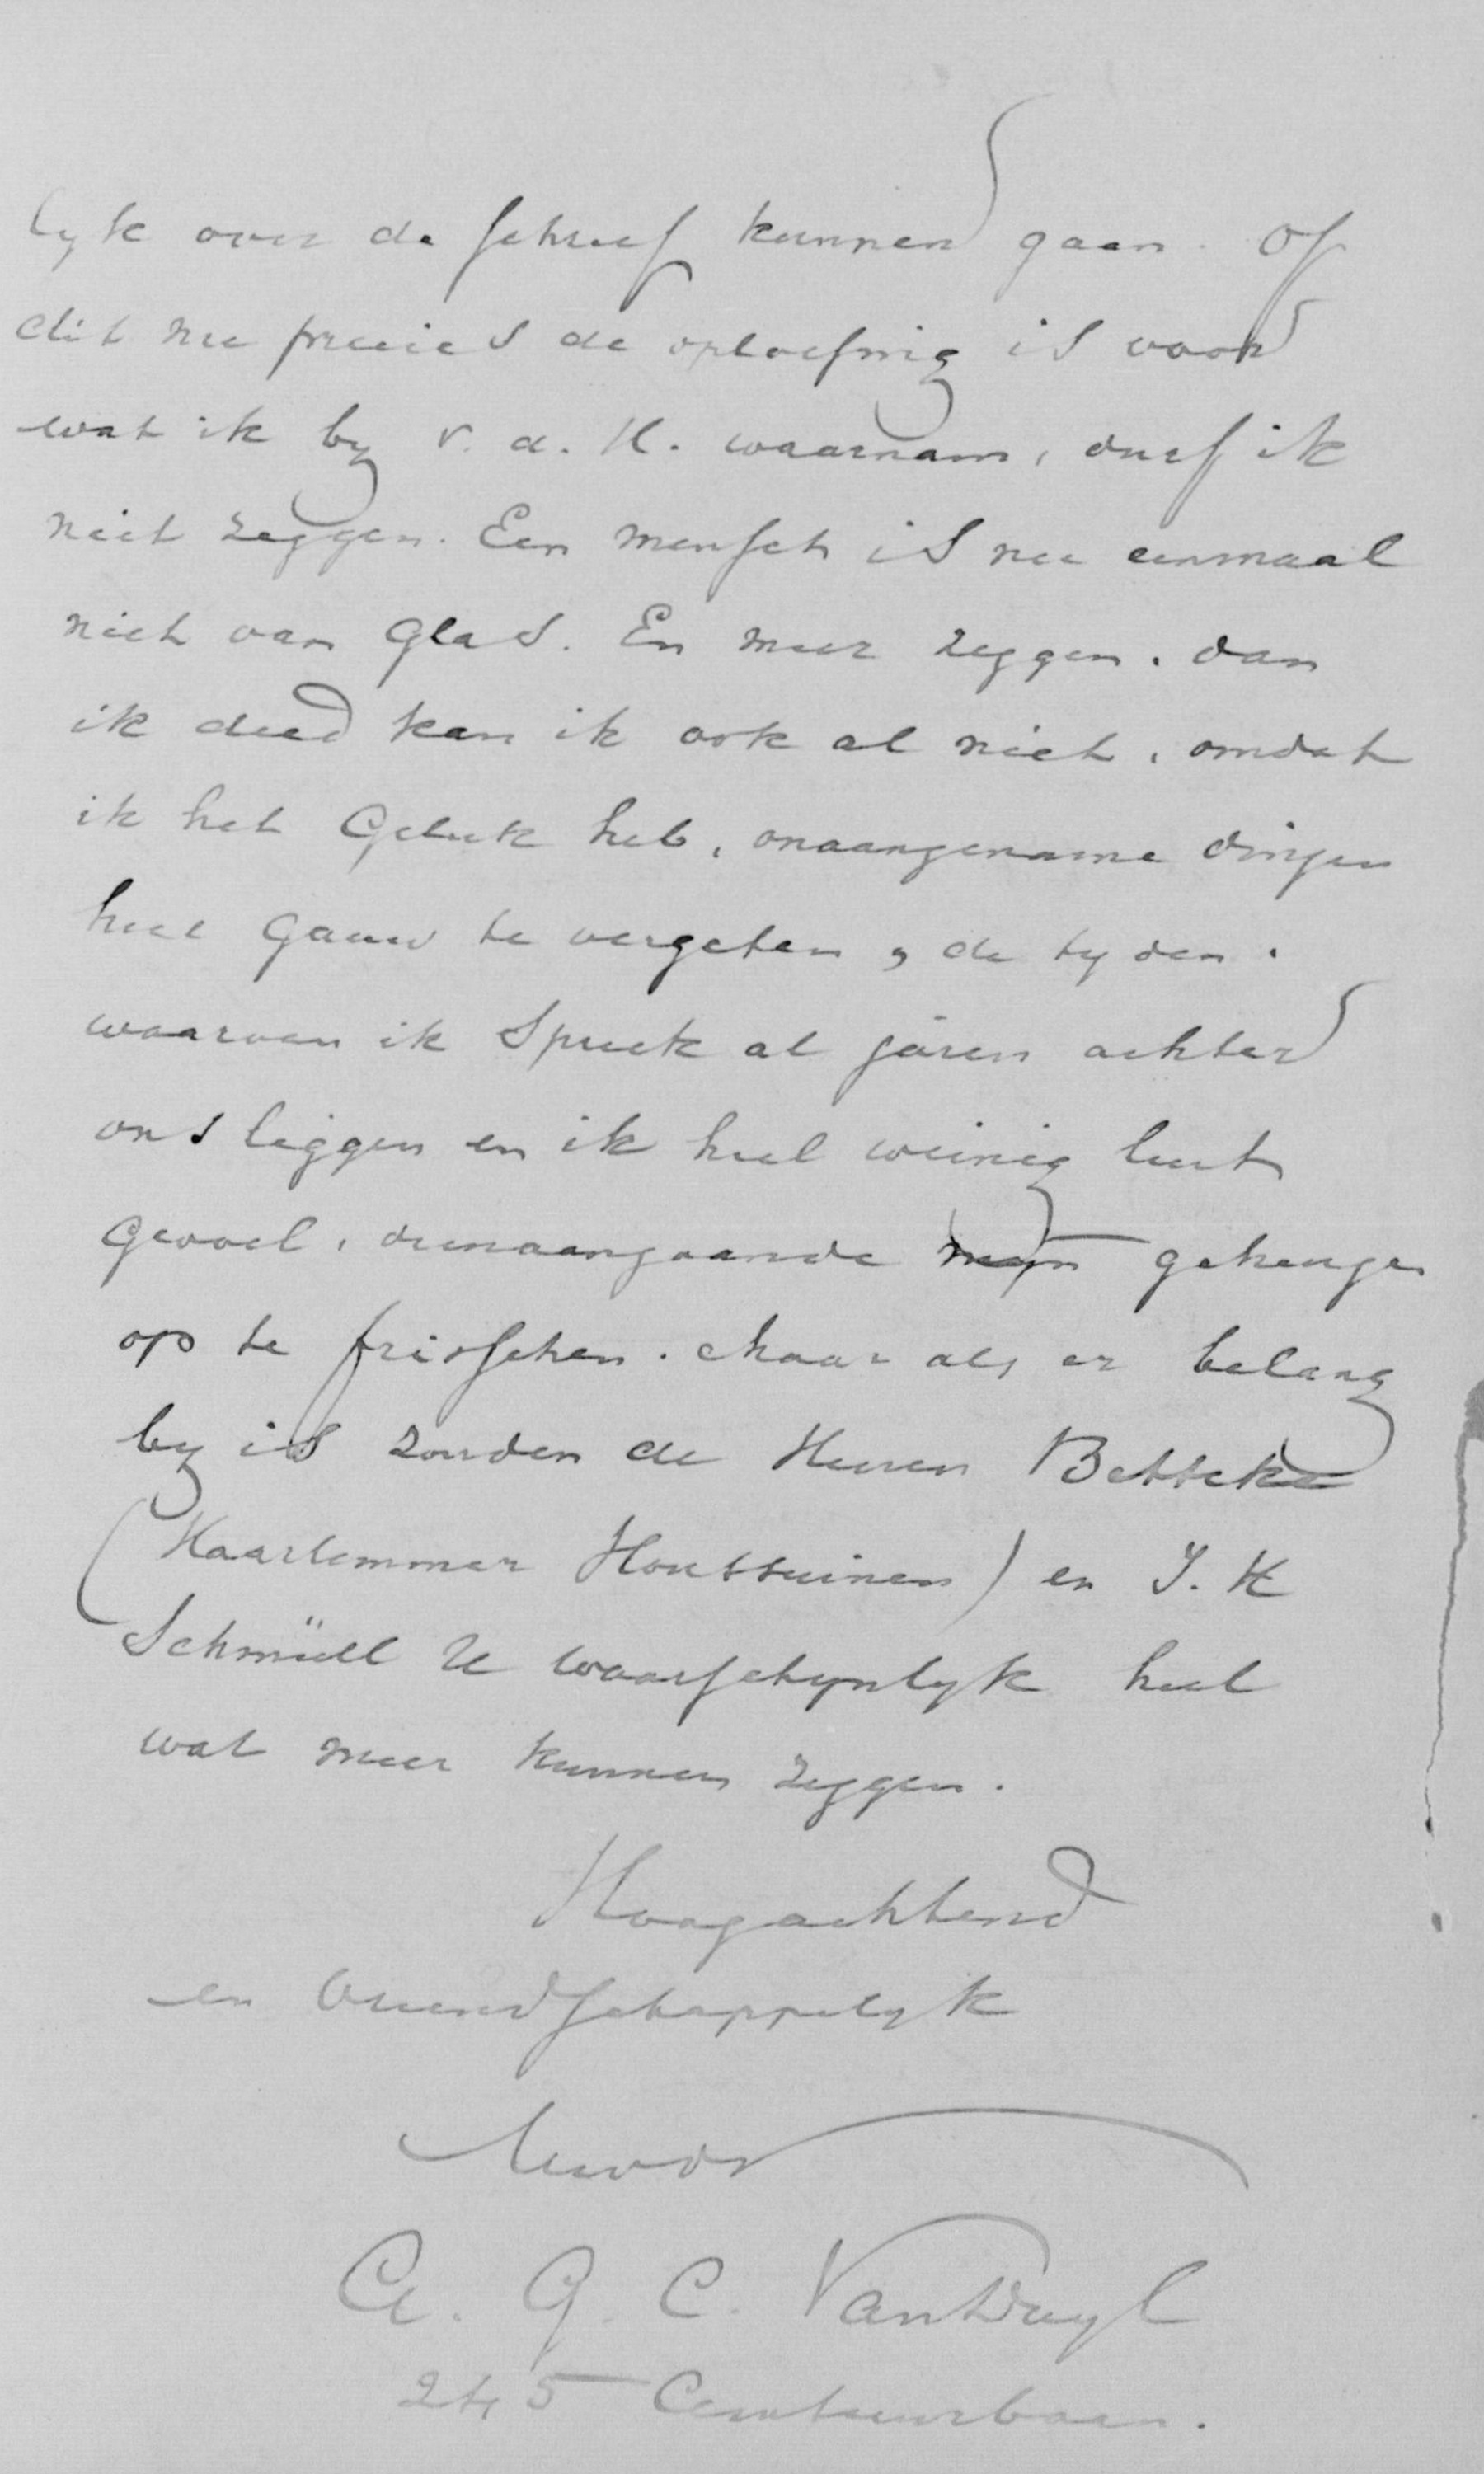 lyk over de schreef kunnen gaan. Of
dit nu precies de oplossing is voor
wat ik by v. d. H. waarnam, durf ik
niet zeggen. Een mensch is nu eenmaal
niet van Glas. En meer zeggen, dan
ik deed kan ik ook al niet, omdat
ik het Geluk heb, onaangename dingen
heel Gauw te vergeten, de tyden,
waarvan ik Spreek al jaren achter
ons liggen en ik heel weinig lust
Gevoel, dienaangaande myn geheugen
op te frisschen. Maar als er belang
by is zouden de Heeren
(Haarlemmer Houttuinen) en J. H
Schmüll U waarschynlyk heel
wat meer kunnen zeggen.
Hoogachtend
en Vriendschappelyk
A. G. C. Van Duyl
245 Ceintuurbaan.